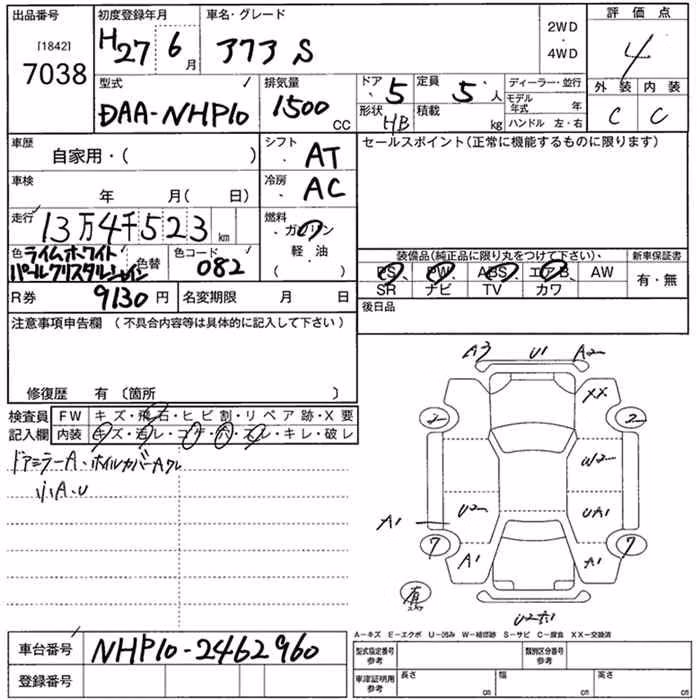 出品番号 初度登録年月 車名・グレード 評価点
[1842] 7038 H27 6月 アクア S 2WD・4WD 4
型式 排気量 ドア 5 定員 5人 ディーラー・並行 外装 内装
DAA-NHP10 1500CC 形状 HB 積載 kg モデル年式 年 C C
ハンドル 左・右
車歴 自家用・( ) シフト・AT セールスポイント(正常に機能するものに限ります)
車検 年 月(日) 冷房・AC
走行 13万4千523km 燃料・ガソリン
色 ライムホワイト 色替 色コード 082 軽・油
パールクリスタルシャイン ( )
装備品(純正品に限り丸をつけて下さい)、 新車保証書
PS PW ABS エアB AW 有・無
SR ナビ TV カワ
R券 9130円 名変期限 月 日 後日品
注意事項申告欄 (不具合内容等は具体的に記入して下さい)
修復歴 有 (箇所 )
検査員 FW キズ・飛石・ヒビ割・リペア跡・X要
記入欄 内装 キズ・汚レ・コゲ・穴・スレ・キレ・破レ
ドアミラーA・ホイルカバーAクレ
小A・U
A3 U1 A2
XX
2 2
W2
U2 UA1
A1
7 7
A1 A1
有
A-キズ E-エクボ U-凹み W-補修跡 S-サビ C-腐食 XX-交換済
車台番号 NHP10-2462960 型式指定番号 参考 類別区分番号 参考
登録番号 車庫証明用 参考 長さ cm 幅 cm 高さ cm